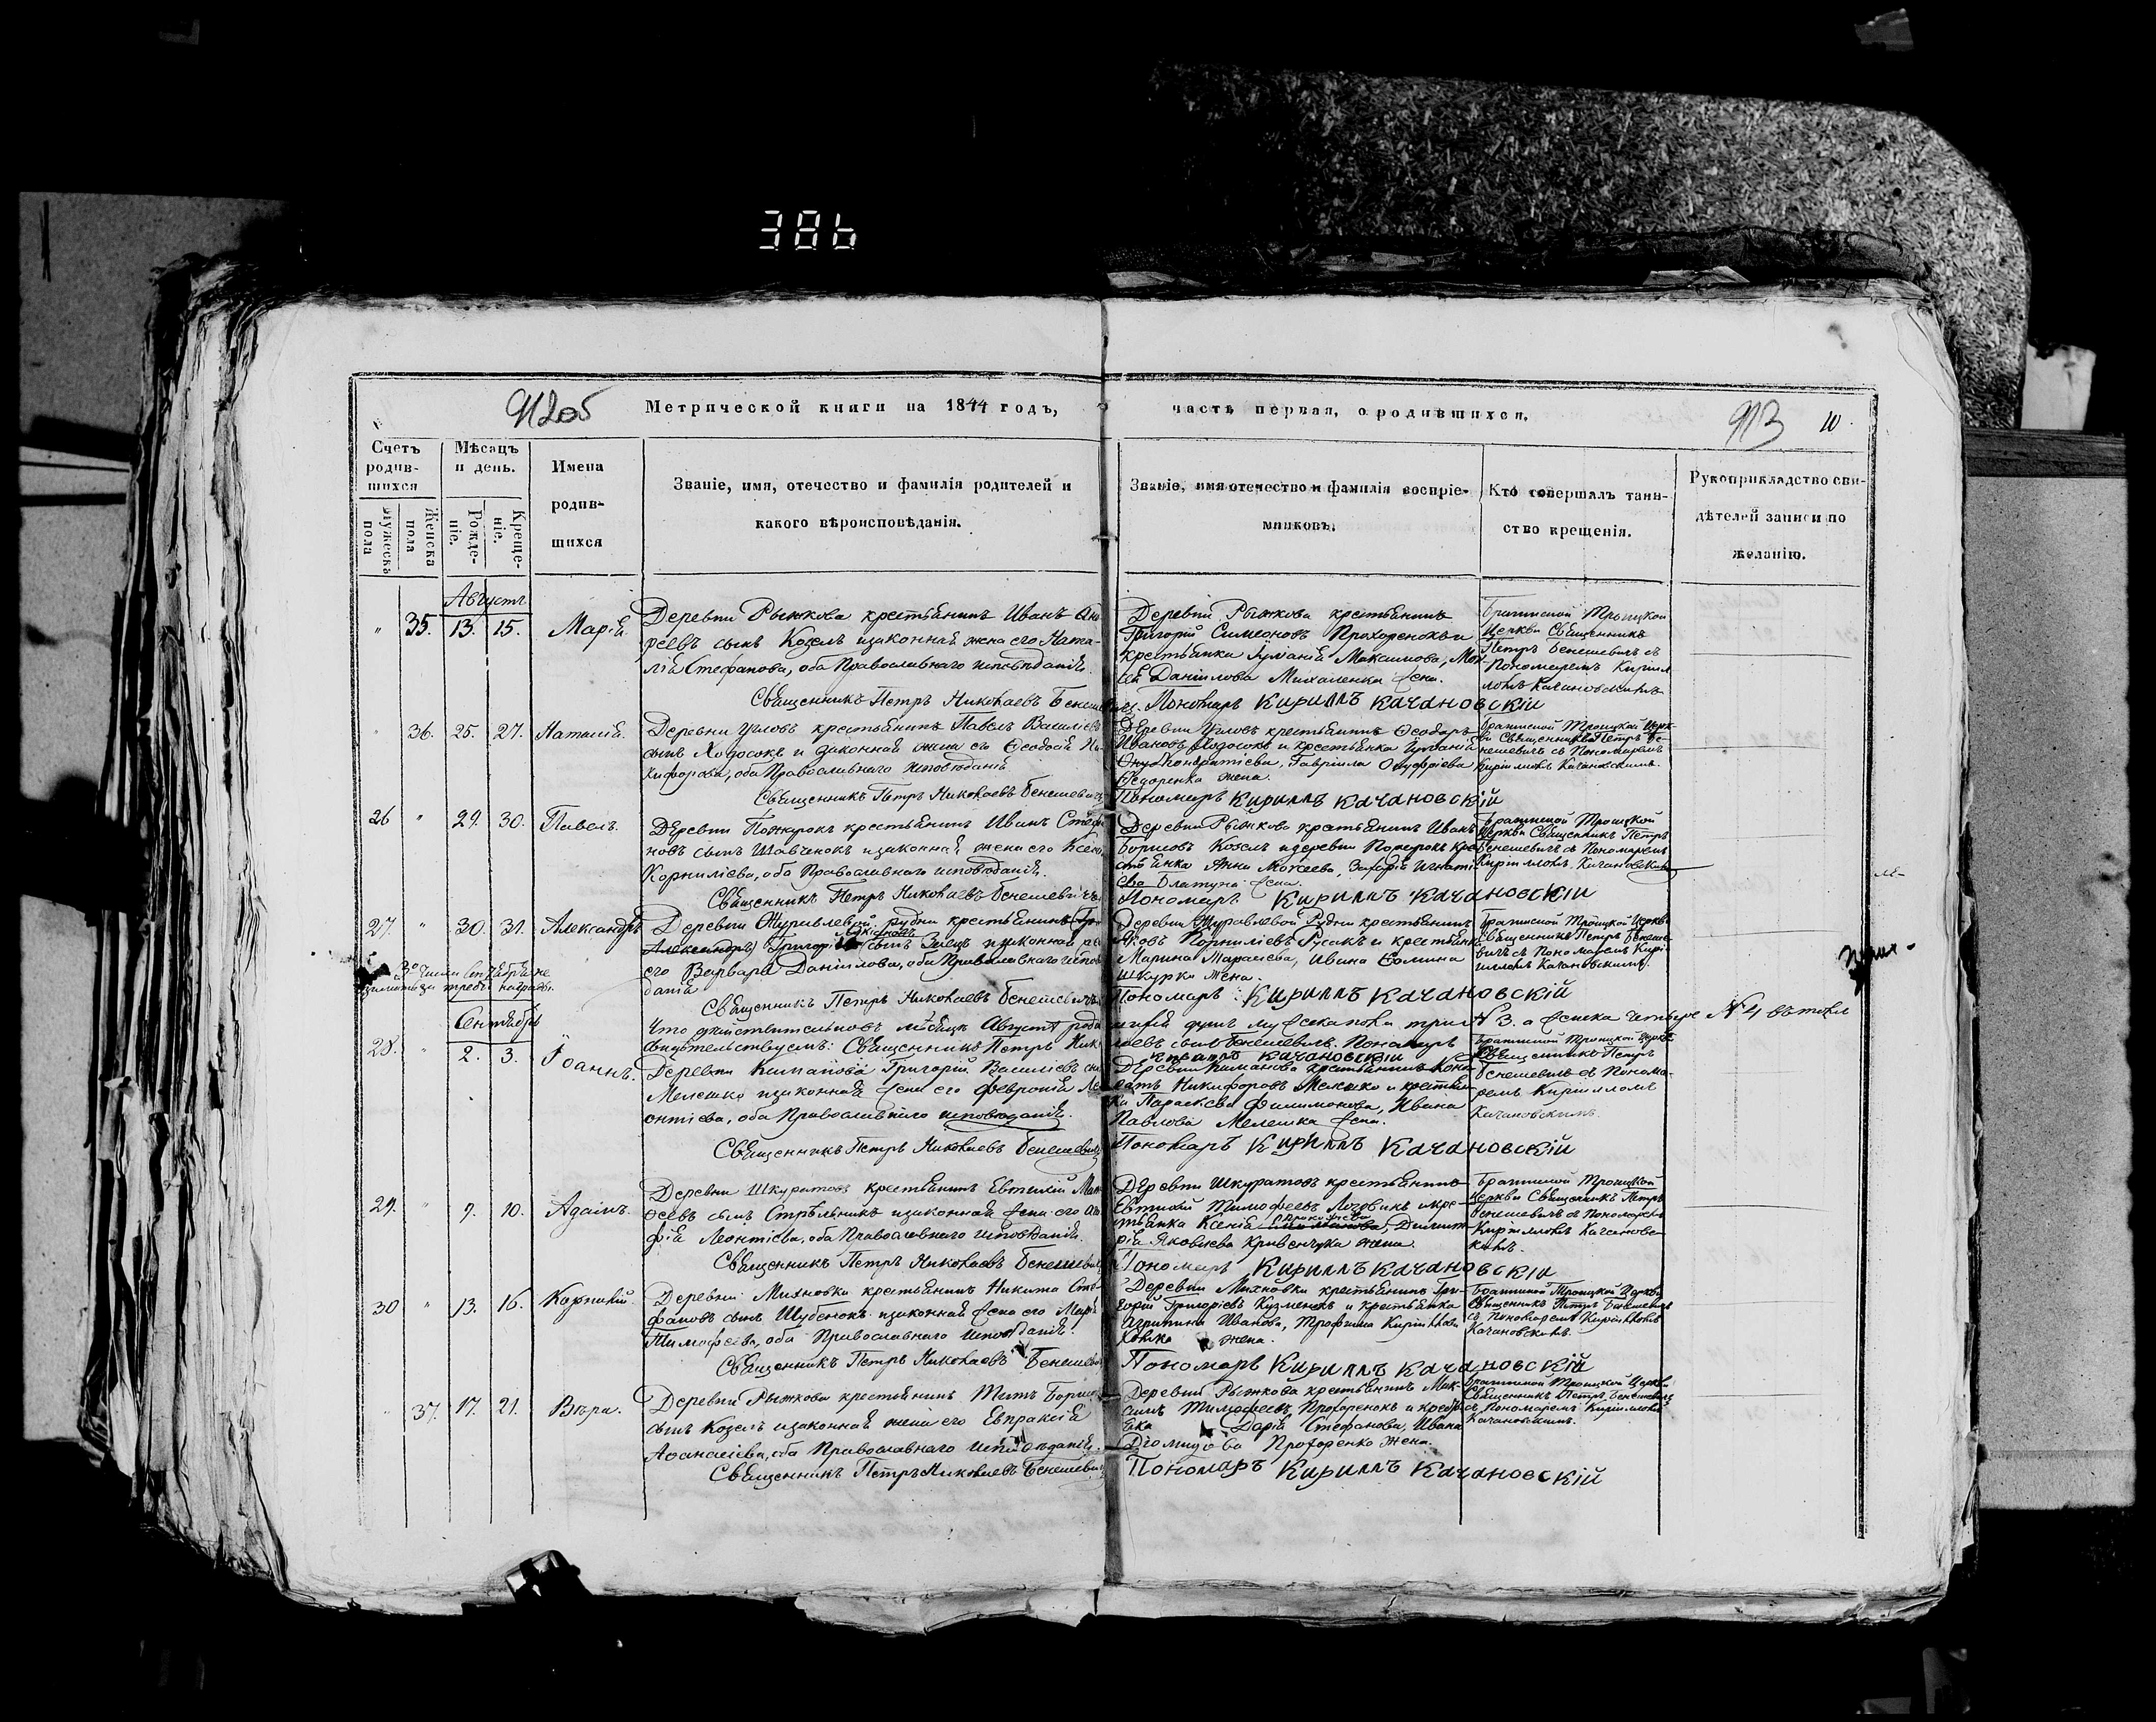 386
912об
Метрической книги на 1844 годъ,
часть первая, о родившихся.
913
10.
Счетъ родив-шихся
Мѣсяцъ и день.
Имена родив-шихся
Званіе, имя, отечество и фамилія родителей и какого вѣроисповѣданія.
Званіе, имя отечество и фамилія воспріе-мниковъ.
Кто совершалъ таин-ство крещенія.
Рукоприкладство сви-дѣтелей записи по желанію.
Мужеска пола
Женска пола
Рожде-ніе.
Креще-ніе.
Августъ
" 35. 13. 15. Марія.
Деревни Рыжкова крестьянинъ Иванъ Ан
реевъ сынъ Козелъ изаконная жена его Ната-
лія Стефанова, оба Православнаго исповѣданія.
Священникъ Петръ Николаевъ Бенешевичъ
Деревни Рыжкова крестьянинъ
Григорій Симеоновъ Прохоренокъ и
крестьянка Іуліанія Максимова, Мои-
сея Даніилова Михаленка жена.
Пономарь Кириллъ Качановскій
Братиской Троицкой
Церкви Священникъ
Петръ Бенешевичъ съ
Пономаремъ Кирил
ломъ Качановскимъ
" 36. 25. 27. Наталія.
Деревни Угловъ крестьянинъ Павелъ Василіевъ
сынъ Холосокъ и законная жена его Ѳеодосія Ни-
кифорова, оба Православнаго исповѣданія
Священникъ Петръ Николаевъ Бенешевичъ
Деревни Угловъ крестьянинъ Ѳеодоръ
Ивановъ и крестьянка Іуліанія
Кондратіева, Гавріила Онуфріева
Ѳедоренка жена.
Пономарь Кириллъ Качановскій
Братиской Троицкой Церк-
ви Священникъ Петръ Бе-
нешевичъ съ Пономаремъ
Кирилломъ Качановскимъ.
26 " 29. 30. Павелъ.
Деревни крестьянинъ Иванъ Стефа
новъ сынъ Шавченокъ изаконная жена его Ксенія
Корниліева, оба Православнаго исповѣданія.
Священникъ Петръ Николаевъ Бенешевичъ
Деревни Рыжкова крестьянинъ Иванъ
Борисовъ Козелъ и деревни кре-
стьянка Анна Моисеева, Захарія Игнатіе
ева жена.
Пономарь Кириллъ Качановскій
Братиской Троицкой
Церкви Священникъ Петръ
Бенешевичъ съ Пономаремъ
Кирилломъ Качановскимъ
27. " 30. 31. Александръ
Деревни Журавлевой рудни крестьянинъ
Александръ Григорій сынъ Заецъ изаконная
его Варвара Даніилова, оба Православнаго исповѣ
данія
Священникъ Петръ Николаевъ Бенешевичъ
Деревни Журавлевой Рудни крестьянинъ
Яковъ Корниліевъ Русакъ и крестьянка
Марина Тарасіева, Ивана Ѳомина
Шкурки жена.
Пономарь Кириллъ Качановскій
Братиской Троицкой Церкви
Священникъ Петръ Бенеше-
вичъ съ Пономаремъ Кири-
ломъ Качановскимъ.
Что дѣйствительно въ мѣсяцѣ Августѣ роди
мужеска пола три № 3. а женска четыре № 4 въ томъ
свидѣтельствуемъ: Священникъ Петръ Нико
лаевъ сынъ Бенешевичъ. Пономарь
Кириллъ Качановскій
Сентябрь
28. " 2. 3. Іоаннъ.
Деревни Киманова Григорій Василіевъ сы
Мелешко изаконная жена его Февронія Ле
онтіева, оба Православнаго исповѣданія.
Священникъ Петръ Николаевъ Бенешевичъ
Деревни Киманова крестьянинъ Кон
ратъ Никифоровъ Мелешко и крестьян
ка Параскева Филимонова, Ивана
Павлова Мелешка жена.
Пономарь Кириллъ Качановскій
Братиской Троицкой Церкви
Священникъ Петръ
Бенешевичъ съ Понома-
ремъ Кирилломъ
Качановскимъ.
29. " 7. 10. Адамъ.
Деревни Шкуратовъ крестьянинъ Евтихій Мои
сеевъ сынъ Стрѣльникъ изаконная жена его
фія Леонтіева, оба Православнаго исповѣданія.
Священникъ Петръ Николаевъ Бенешевичъ
Деревни Шкуратовъ крестьянинъ
Евтихій Тимофеевъ и кре-
стьянка Ксенія Прокофіева, Димит-
рія Яковлева Кривенчука жена.
Пономарь Кириллъ Качановскій
Братиской Троицкой
Церкви Священникъ Петръ
Бенешевичъ съ Пономаремъ
Кирилломъ Качановс-
кимъ.
30 " 13. 16. Корнилій.
Деревни Михновки крестьянинъ Никита Сте-
фановъ сынъ Шубенокъ изаконная жена его Марія
Тимофеева, оба Православнаго исповѣданія.
Священникъ Петръ Николаевъ Бенешевичъ
Деревни Михновки крестьянинъ Гри-
горій Григоріевъ Кузменокъ и крестьянка
Агрипина Иванова, Трофима Кириллова
жена.
Пономарь Кириллъ Качановскій
Братиской Троицкой Церкви
Священникъ Петръ Бенешевичъ
съ Пономаремъ Кирилломъ
Качановскимъ.
" 37. 17. 21. Вѣра.
Деревни Рыжкова крестьянинъ Титъ Борисо
сынъ Козелъ изаконная жена его Евпраксія
Аѳанасіева, оба Православнаго исповѣданія.
Священникъ Петръ Николаевъ Бенешевичъ
Деревни Рыжкова крестьянинъ Мак-
симъ Тимофеевъ Прохоренокъ и крестьян
ка Дарія Стефанова, Ивана
Діомидова Прохоренка жена.
Пономарь Кириллъ Качановскій
Братиской Троицкой Церкви
Священникъ Петръ Бенешевичъ
съ Пономаремъ Кирилломъ
Качановскимъ.